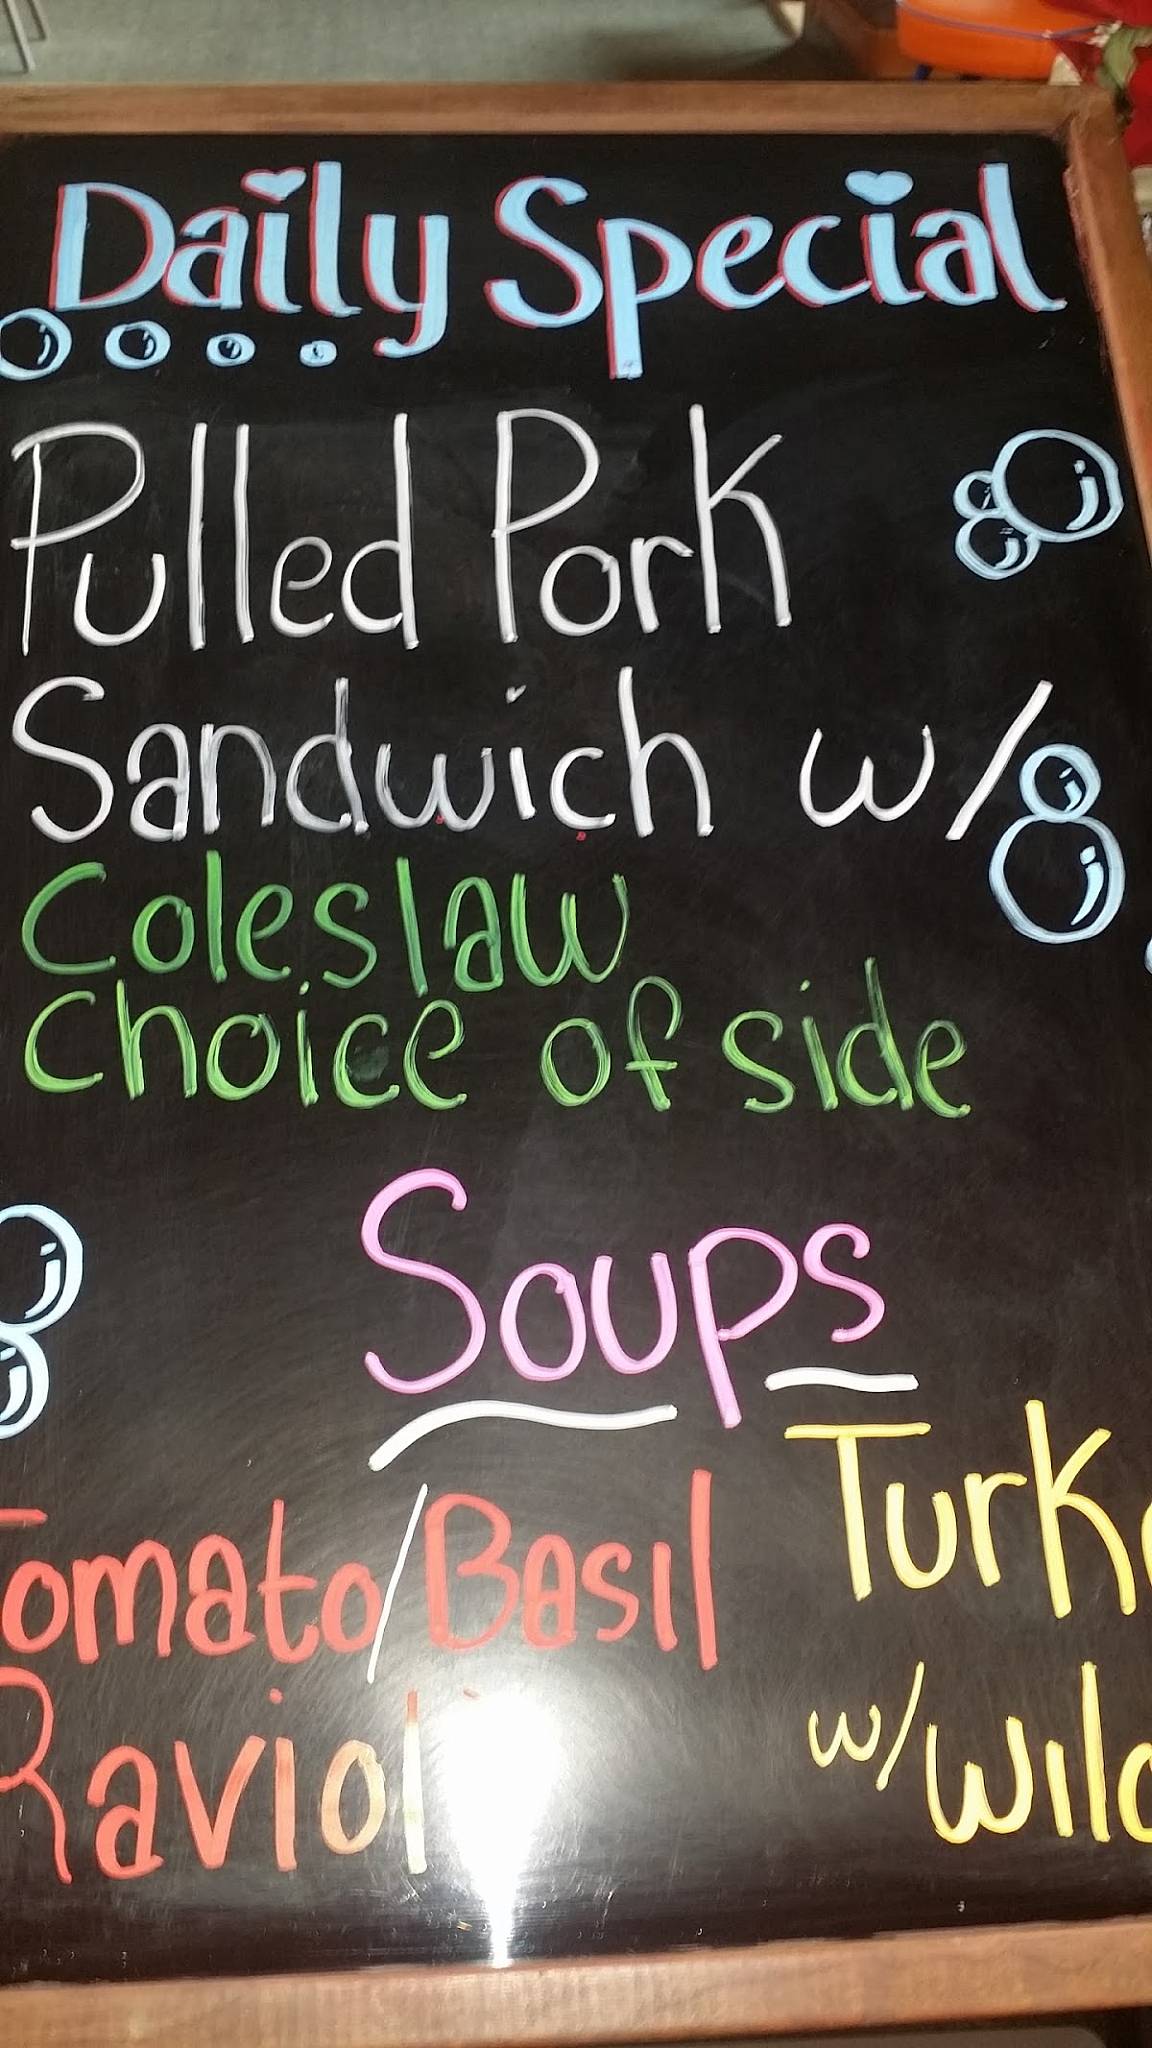 Daily Special
Pulled Pork
Sandwich w/
Coleslaw
Choice of side
Soups
Tomato/Basil
Ravioli
Turk
w/Wil